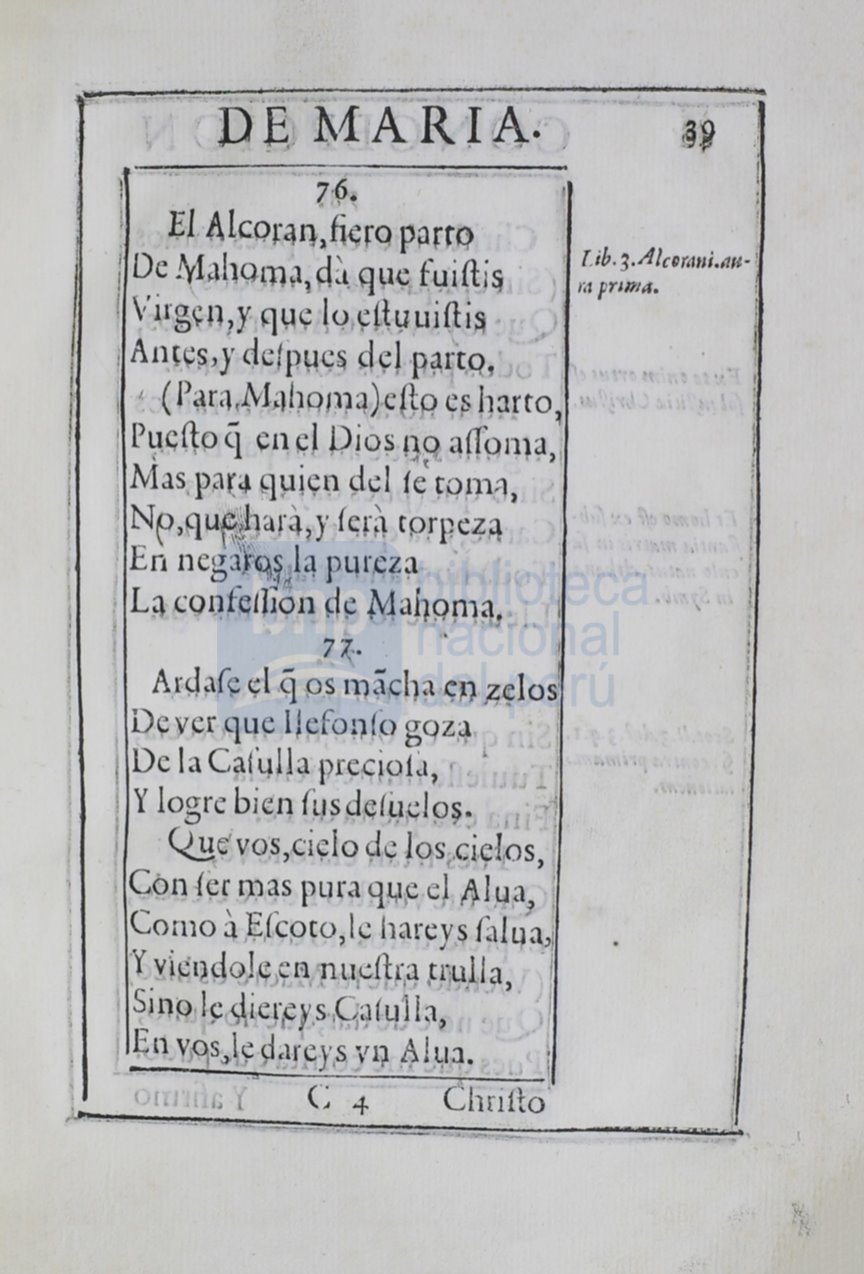 DE MARIA.
39
76.
El Alcoran, fiero parto
De Mahoma, dà que fuiſtis
Virgen, y que lo eſtuuiſtis
Antes, y deſpues del parto.
(Para Mahoma) eſto es harto,
Pueſto q̄ en el Dios no aſſoma,
Mas para quien del ſe toma,
No, que harà, y ſerà torpeza
En negaros la pureza
La confeſſion de Mahoma.
Lib. 3. Alcorani. au-
ra prima.
77.
Ardaſe el q̄ os mācha en zelos
De ver que Ilefonſo goza
De la Caſulla precioſa,
Y logre bien ſus deſuelos.
Que vos, cielo de los cielos,
Con ſer mas pura que el Alua,
Como à Eſcoto, le hareys ſalua,
Y viendole en nueſtra trulla,
Sino le diereys Caſulla,
En vos, le dareys vn Alua.
C 4
Chriſto
bnp
biblioteca
nacional
del perú